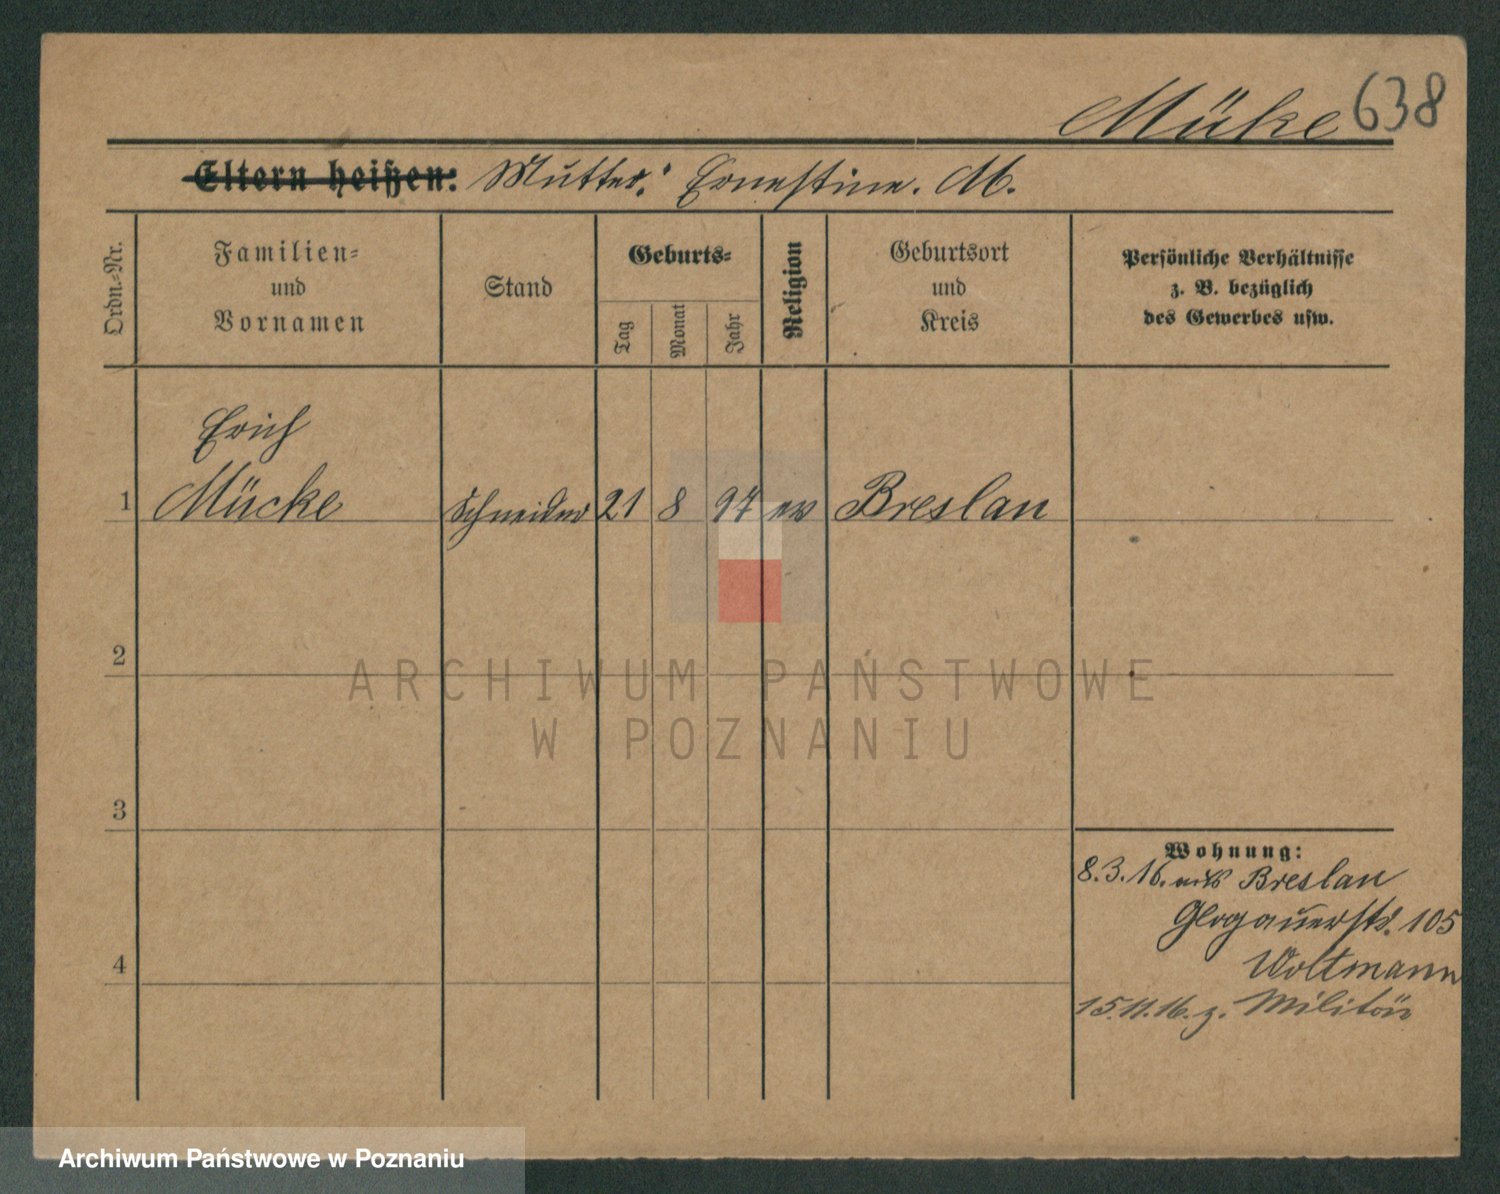 Müke 638
Eltern heißen: Mutter: Ernestine. M.
Ordn.-Nr.
Familien-
und
Vornamen
Stand
Geburts-
Tag
Monat
Jahr
Religion
Geburtsort
und
Kreis
Persönliche Verhältnisse
z. B. bezüglich
des Gewerbes usw.
Erich
1 Mücke Schneider 21 8 97 ev Breslau
2
ARCHIWUM PAŃSTWOWE
W POZNANIU
3
Wohnung:
8.3.16. aus Breslau
Glogauerstr. 105
Woltmann
4
15.11.16. z. Militär
Archiwum Państwowe w Poznaniu